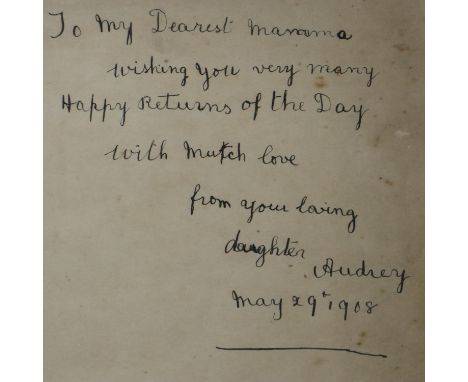 To My Dearest Mamma
wishing you very many
Happy Returns of the Day
with Mutch love
from your loving
daughter
Audrey
May 29th 1908